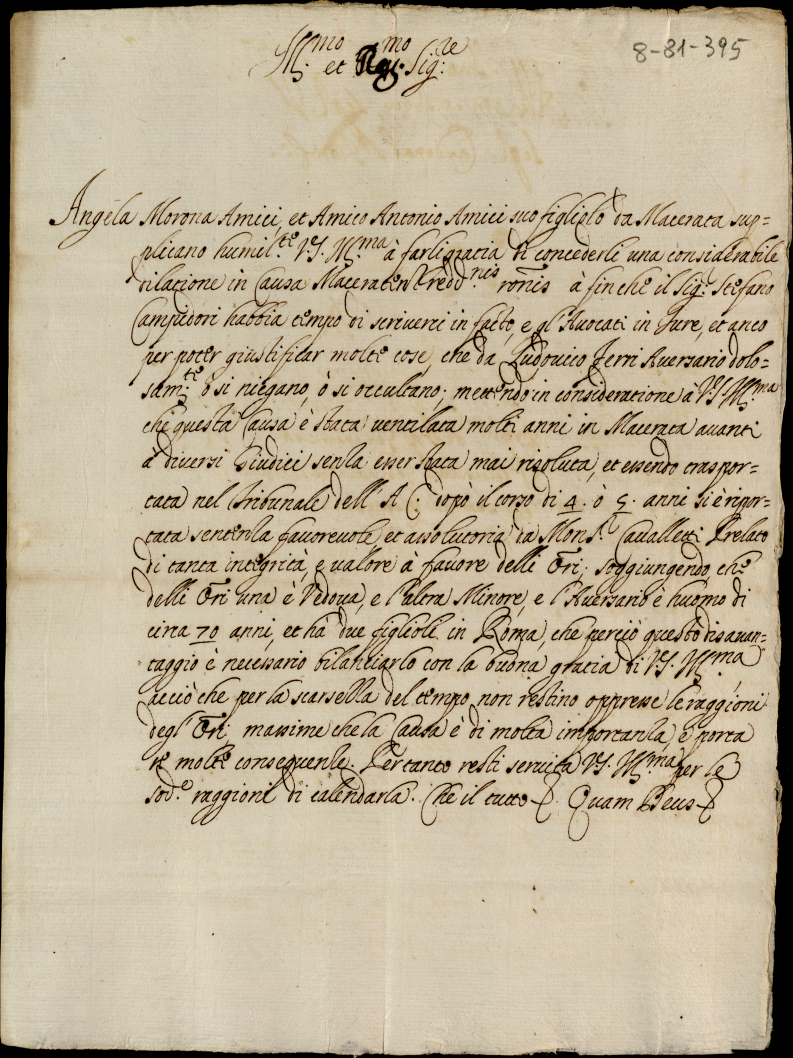 8-81-395
Ill.mo et R.mo Sig.re
Angela Morona Amici, et Amico Antonio Amici suo figliolo da Macerata sup=
plicano humil.te V.S. Ill.ma à farli gratia di concederli una considerabile
dilatione in Causa Maceraten Redd.nis ronis à fin che il Sig.r Stefano
Campidori habbia tempo di scriverci in facto, e gl'Avocati in Jure, et anco
per poter giustificar molte cose, che da Ludovico Ferri Aversario dolo=
sam.te ò si niegano, ò si occultano; mettendo in consideratione à V.S. Ill.ma
che questa Causa è stata ventilata molti anni in Macerata avanti
à diversi Giudici senza esser stata mai risoluta, et essendo traspor=
tata nel Tribunale dell'A C. dopò il corso di 4. ò 5. anni si è ripor=
tata sentenza favorevole, et assolutoria da Mons.r Cavalletti Prelato
di tanta integrità, e vallore à favore delli Ori; soggiungendo, che
delli Ori una è Vedova, e l'altra Minore, e l'Aversario è huomo di
circa 70 anni, et hà due figlioli in Roma, che perciò questo disavan=
taggio è necessario bilantiarlo con la buona gratia di V.S. Ill.ma
acciò che per la scarsezza del tempo non restino oppresse le raggioni
degl'Ori, massime che la Causa è di molta importanza, e porta
re molte conseguenze. Pertanto resti servita V.S. Ill.ma per le
sod.e raggioni di calendarla. Che il tutto Quam Deus